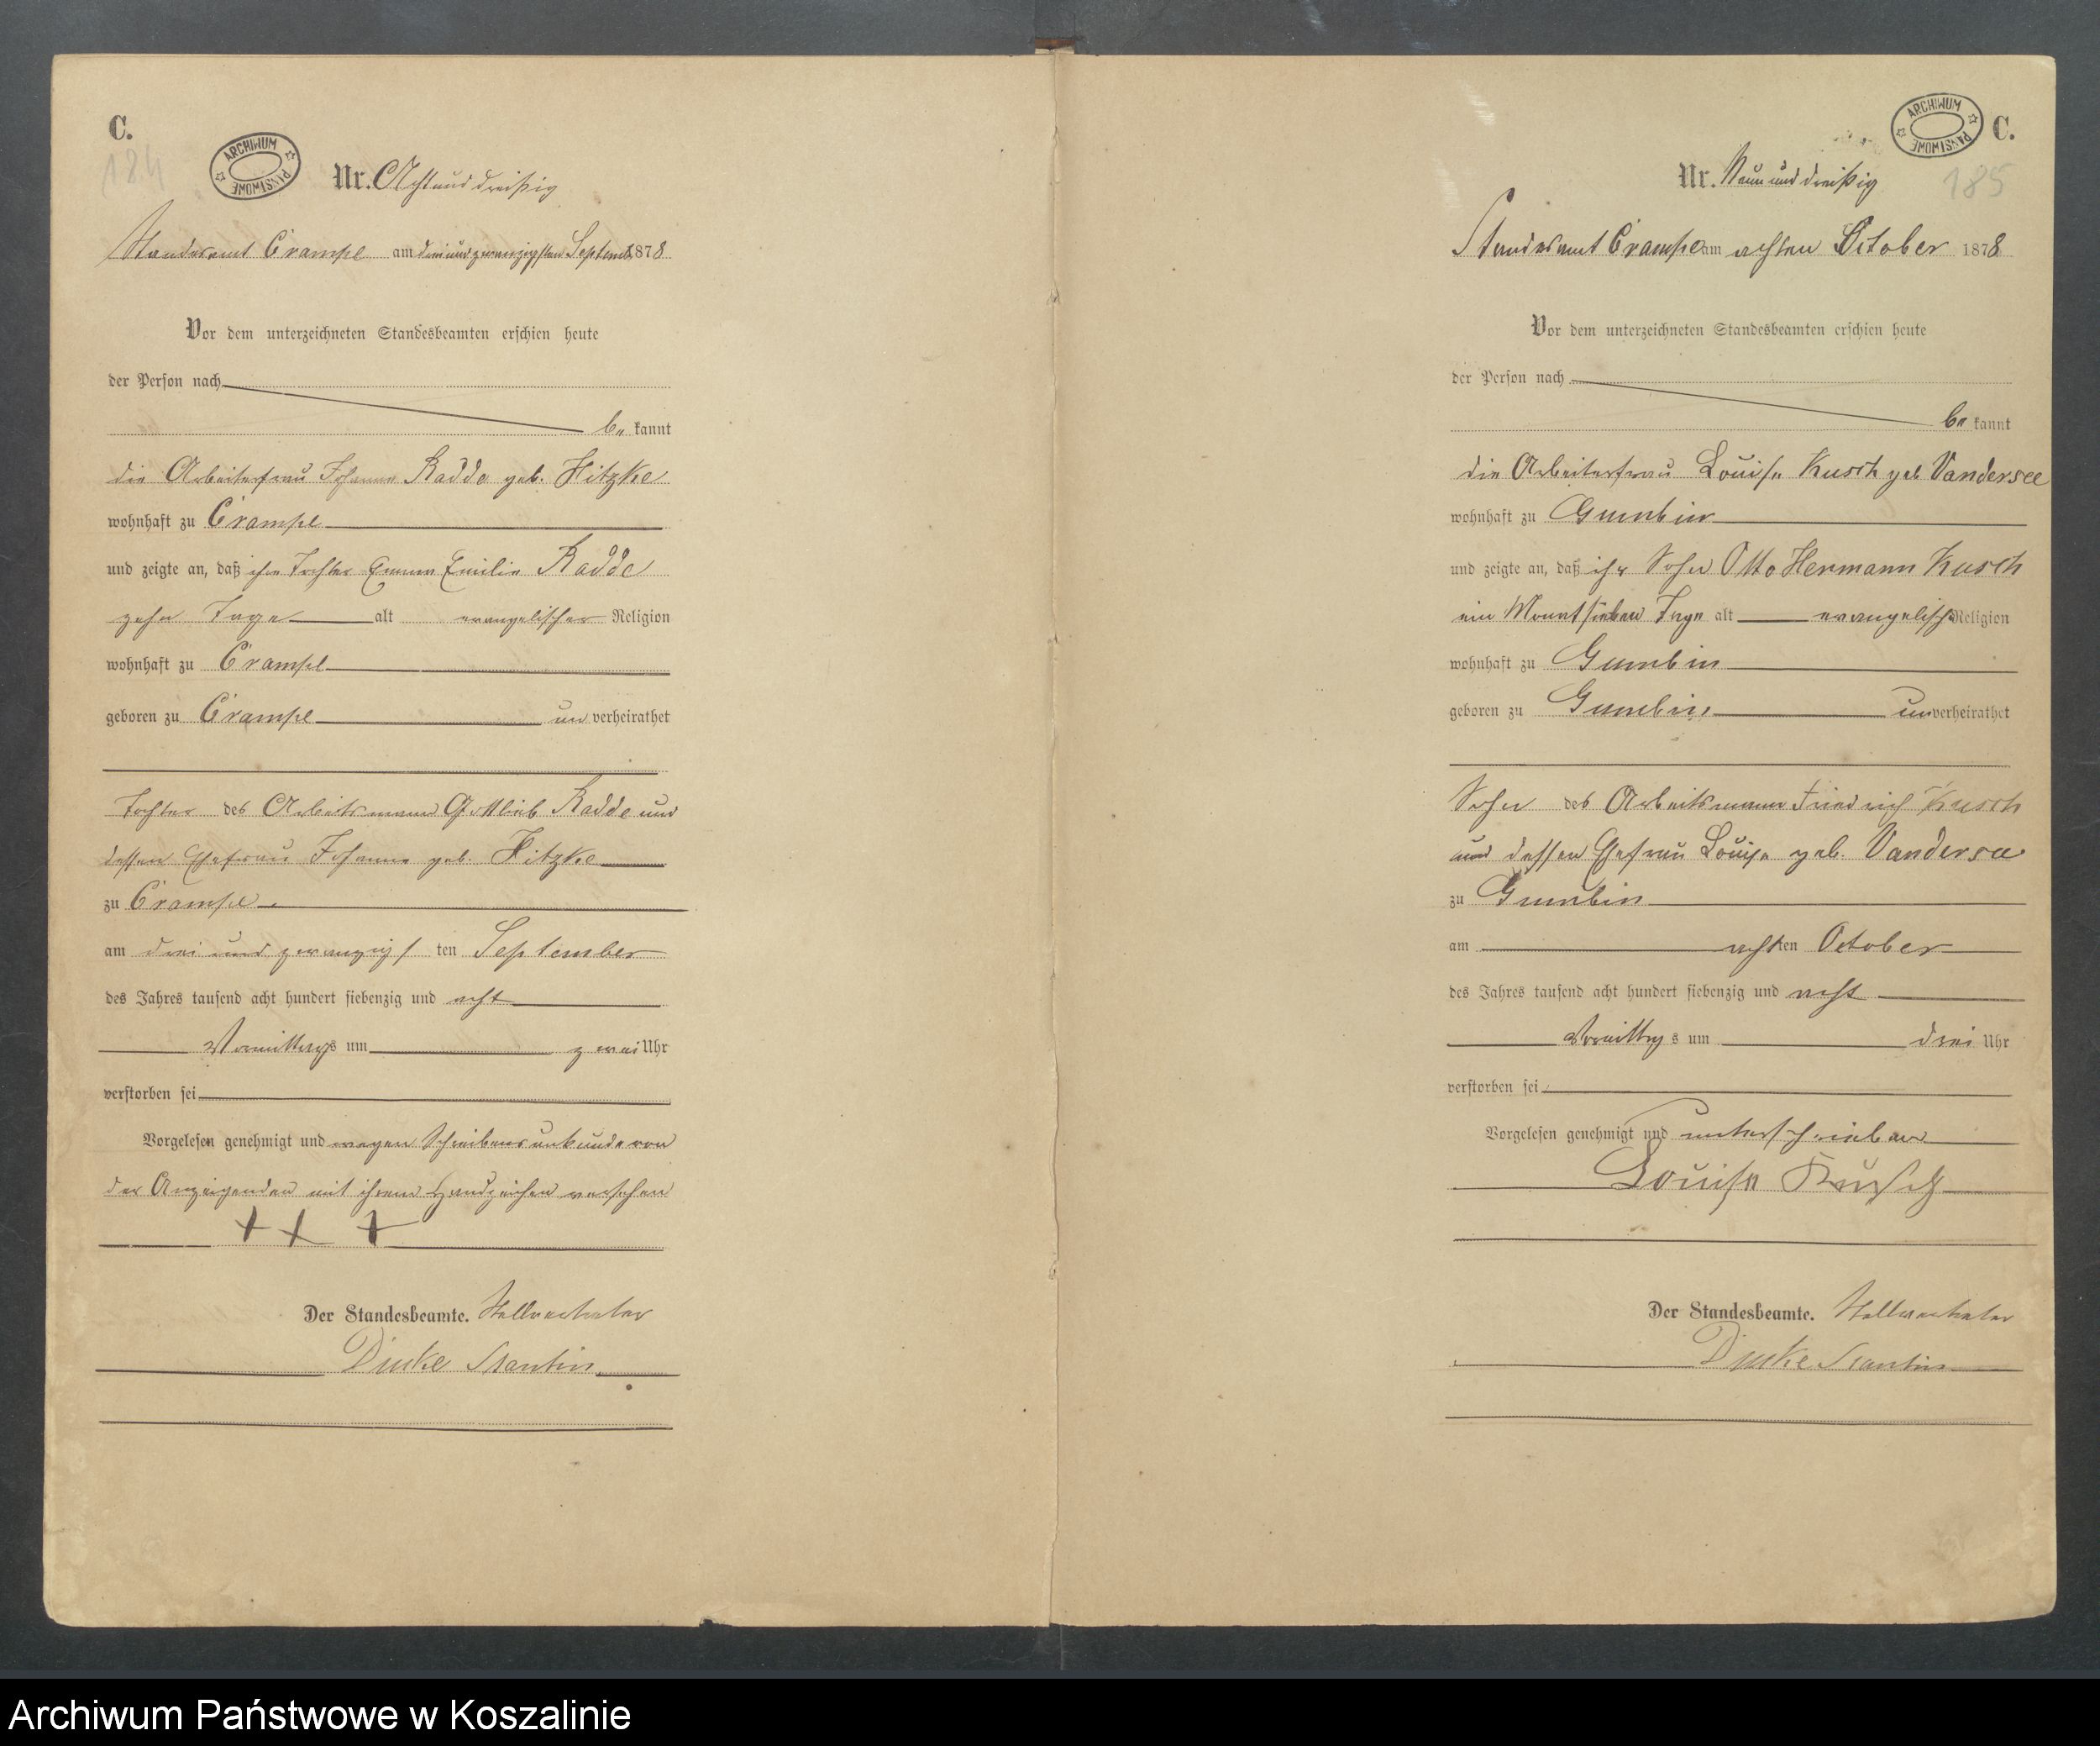 C.
184
ARCHIWUM PAŃSTWOWE
Nr. Achtunddreißig
Standesamt Crampe am dreiundzwanzigsten Septemb. 1878
Vor dem unterzeichneten Standesbeamten erschien heute
der Person nach
be kannt
die Arbeiterfrau Johanne Radde geb. Hitzke
wohnhaft zu Crampe
und zeigte an, daß ihre Tochter Emma Emilie Radde
zehn Tage alt evangelischer Religion
wohnhaft zu Crampe
geboren zu Crampe un verheirathet
Tochter des Arbeitsmann Gottlieb Radde und
dessen Ehefrau Johanne geb. Hitzke
zu Crampe
am drei und zwanzigs ten September
des Jahres tausend acht hundert siebenzig und acht
Vormittags um zwei Uhr
verstorben sei
Vorgelesen genehmigt und wegen Schreibensunkunde von
der Anzeigenden mit ihrem Handzeichen versehen
+ + +
Der Standesbeamte. Stellvertreter
C.
185
ARCHIWUM PAŃSTWOWE
Nr. Neun und dreißig
Standesamt Crampe am achten October 1878
Vor dem unterzeichneten Standesbeamten erschien heute
der Person nach
be kannt
die Arbeiterfrau Louise Kusch geb Vandersee
wohnhaft zu Gumbin
und zeigte an, daß ihr Sohn Otto Hermann Kusch
ein Monat sieben Tage alt evangelisch Religion
wohnhaft zu Gumbin
geboren zu Gumbin unverheirathet
Sohn des Arbeitsmann Friedrich Kusch
und dessen Ehefrau Louise geb. Vandersee
zu Gumbin
am achten October
des Jahres tausend acht hundert siebenzig und acht
Vormittags um drei Uhr
verstorben sei
Vorgelesen genehmigt und unterschrieben
Louise Kusch
Der Standesbeamte. Stellvertreter
Archiwum Państwowe w Koszalinie